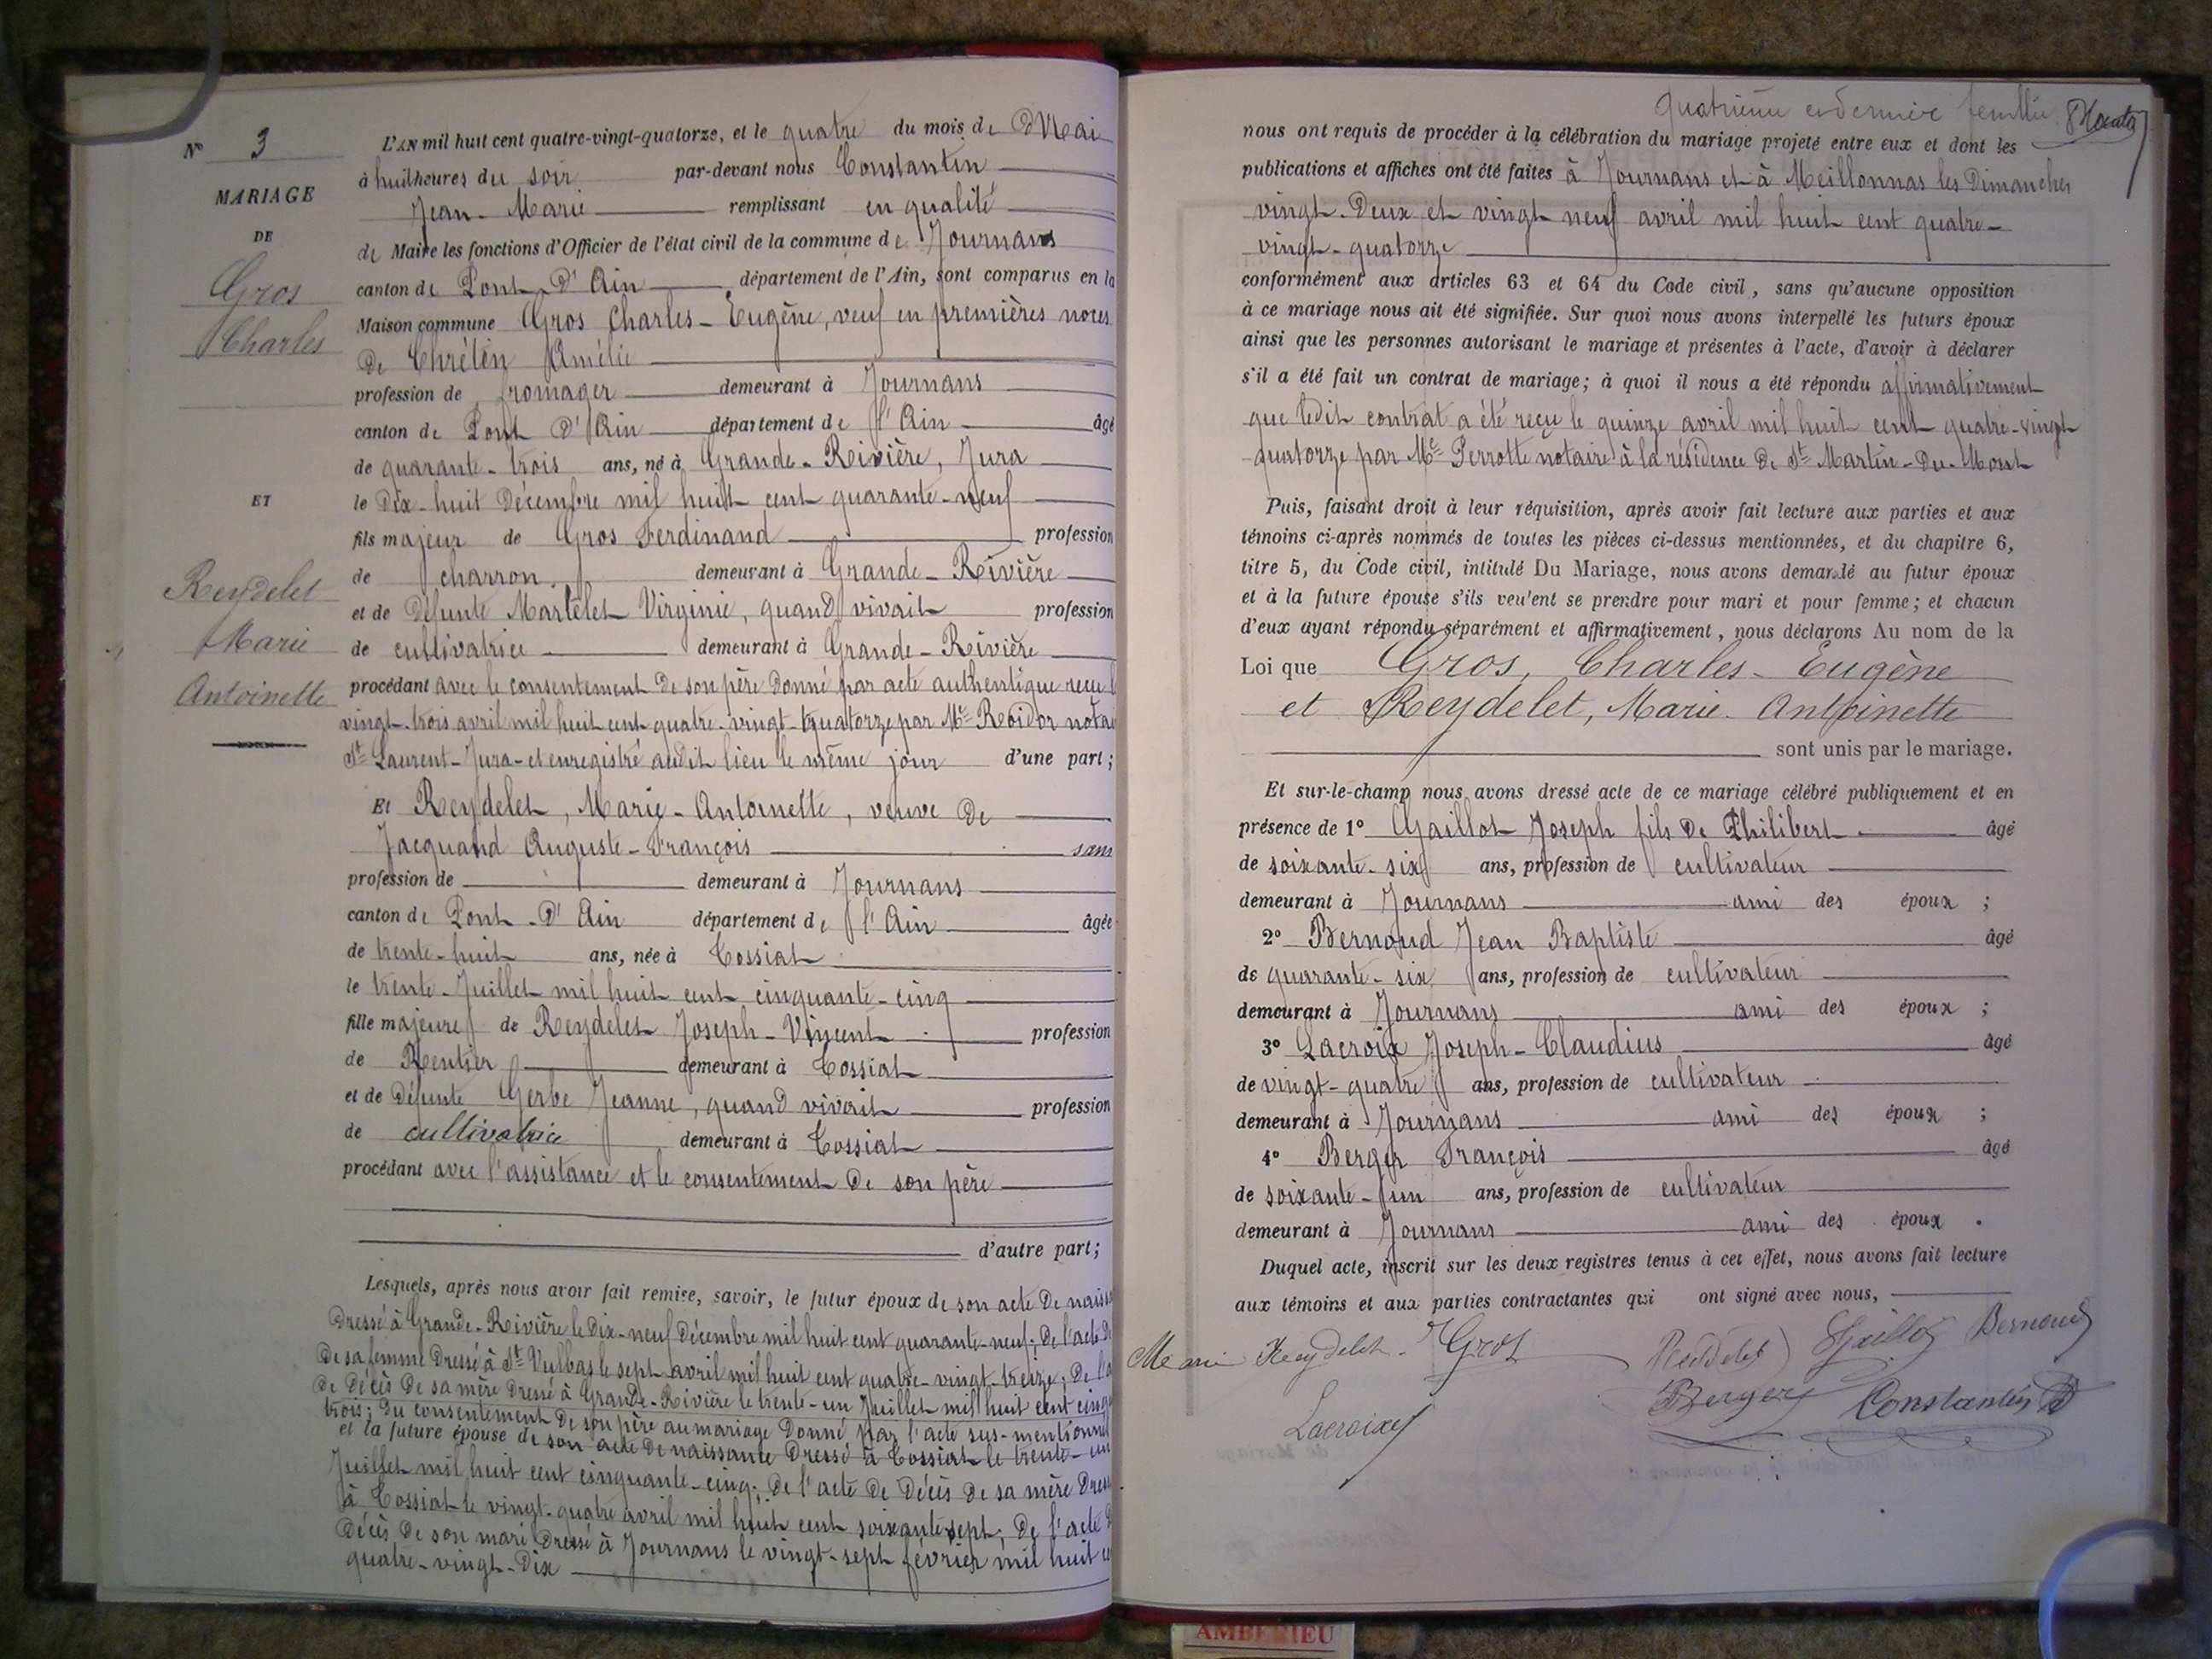 N° 3
MARIAGE
DE
Gros
Charles
ET
Reydelet
Marie
Antoinette
L'AN mil huit cent quatre-vingt-quatorze, et le quatre du mois de Mai
à huit heures du soir par-devant nous Constantin
Jean-Marie remplissant en qualité
de Maire les fonctions d'Officier de l'état civil de la commune de Journans
canton de Pont-d'Ain département de l'Ain, sont comparus en la
Maison commune Gros Charles-Eugène, veuf en premières noces
de Chrétin Amélie
profession de fromager demeurant à Journans
canton de Pont d'Ain département de l'Ain âgé
de quarante-trois ans, né à Grande-Rivière, Jura
le Dix-huit Décembre mil huit cent quarante-neuf
fils majeur de Gros Ferdinand profession
de charron demeurant à Grande-Rivière
et de Défunte Martelet Virginie, quand vivait profession
de cultivatrice demeurant à Grande-Rivière
procédant avec le consentement de son père donné par acte authentique reçu l
vingt-trois avril mil huit cent quatre-vingt-quatorze par Me notai
St Laurent-Jura-et enregistré audit lieu le même jour d'une part;
Et Reydelet, Marie-Antoinette, veuve de
Jacquand Auguste-François sans
profession de demeurant à Journans
canton de Pont-d'Ain département de l'Ain âgée
de trente-huit ans, née à Tossiat
le trente-Juillet mil huit cent cinquante-cinq
fille majeure de Reydelet Joseph-Vincent profession
de Rentier demeurant à Tossiat
et de Défunte Gerbe Jeanne, quand vivait profession
de cultivatrice demeurant à Tossiat
procédant avec l'assistance et le consentement de son père
d'autre part;
Lesquels, après nous avoir fait remise, savoir, le futur époux de son acte de naiss
dressé à Grande-Rivière le Dix-neuf Décembre mil huit cent quarante-neuf; de l'acte de
de sa femme dressé à St Vulbas le sept avril mil huit cent quatre-vingt-treize; de l'a
de décès de sa mère dressé à Grande-Rivière le trente-un Juillet mil huit cent cinq
trois; du consentement de son père au mariage donné par l'acte sus-mentionné
et la future épouse de son acte de naissance dressé à Tossiat le trente-un
Juillet mil huit cent cinquante-cinq; de l'acte de décès de sa mère dress
à Tossiat le vingt-quatre avril mil huit cent soixante sept; de l'acte d
décès de son mari dressé à Journans le vingt-sept février mil huit ce
quatre-vingt-dix
Quatrième et dernière feuille
nous ont requis de procéder à la célébration du mariage projeté entre eux et dont les
publications et affiches ont été faites à Journans et à Meillonnas les Dimanches
vingt-Deux et vingt neuf avril mil huit cent quatre-
vingt-quatorze
conformément aux articles 63 et 64 du Code civil, sans qu'aucune opposition
à ce mariage nous ait été signifiée. Sur quoi nous avons interpellé les futurs époux
ainsi que les personnes autorisant le mariage et présentes à l'acte, d'avoir à déclarer
s'il a été fait un contrat de mariage; à quoi il nous a été répondu affirmativement
que ledit contrat a été reçu le quinze avril mil huit cent quatre-vingt
quatorze par Me Perrotte notaire à la résidence de St Martin-du-Mont
Puis, faisant droit à leur réquisition, après avoir fait lecture aux parties et aux
témoins ci-après nommés de toutes les pièces ci-dessus mentionnées, et du chapitre 6,
titre 5, du Code civil, intitulé Du Mariage, nous avons demandé au futur époux
et à la future épouse s'ils veulent se prendre pour mari et pour femme; et chacun
d'eux ayant répondu séparément et affirmativement, nous déclarons Au nom de la
Loi que Gros, Charles-Eugène
et Reydelet, Marie-Antoinette
sont unis par le mariage.
Et sur-le-champ nous avons dressé acte de ce mariage célébré publiquement et en
présence de 1° Gaillot Joseph fils de Philibert âgé
de soixante-six ans, profession de cultivateur
demeurant à Journans ami des époux ;
2° Bernoud Jean Baptiste âgé
de quarante-six ans, profession de cultivateur
demeurant à Journans ami des époux ;
3° Lacroix Joseph-Claudius âgé
de vingt-quatre ans, profession de cultivateur
demeurant à Journans ami des époux ;
4° Berger François âgé
de soixante-un ans, profession de cultivateur
demeurant à Journans ami des époux .
Duquel acte, inscrit sur les deux registres tenus à cet effet, nous avons fait lecture
aux témoins et aux parties contractantes qui ont signé avec nous,
Marie Reydelet Gros Reydelet Gaillot Bernoud
Lacroix Berger Constantin
AMBERIEU